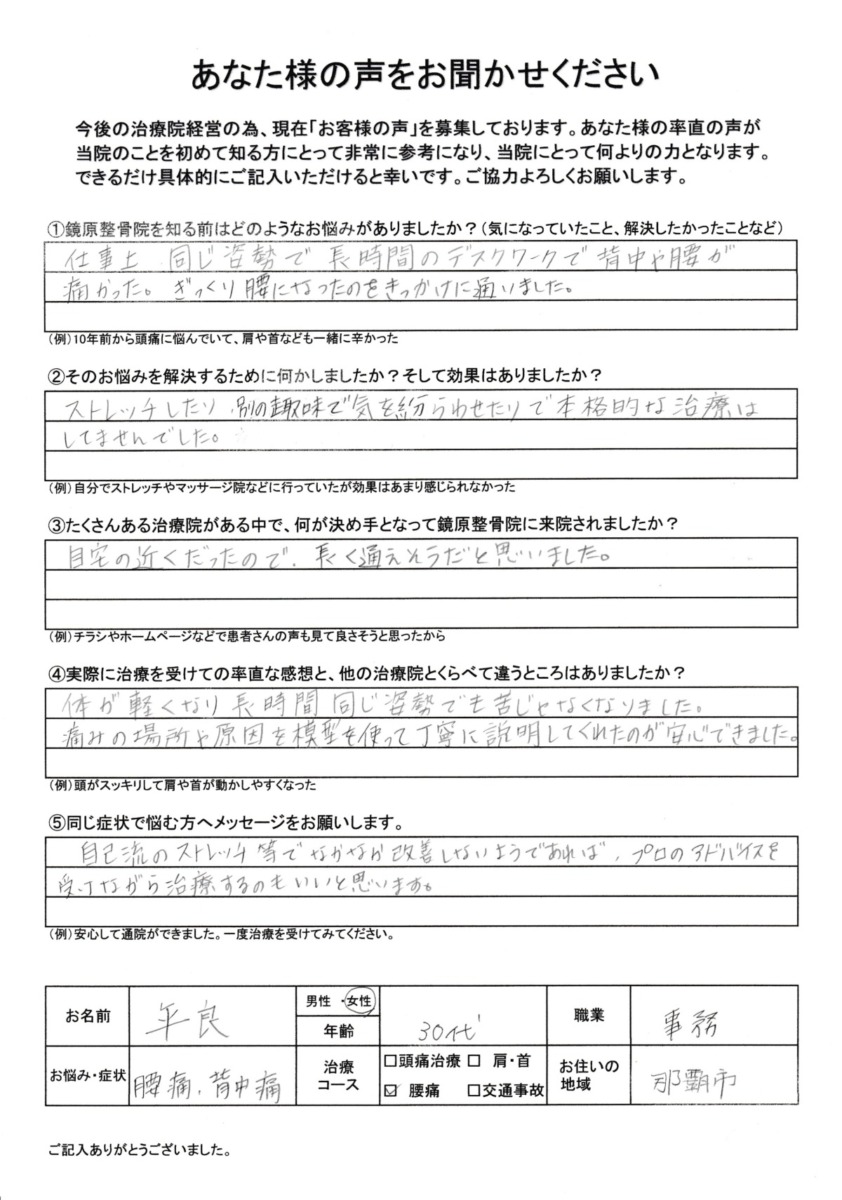 あなた様の声をお聞かせください
今後の治療院経営の為、現在「お客様の声」を募集しております。あなた様の率直の声が
当院のことを初めて知る方にとって非常に参考になり、当院にとって何よりの力となります。
できるだけ具体的にご記入いただけると幸いです。ご協力よろしくお願いします。
①鏡原整骨院を知る前はどのようなお悩みがありましたか？（気になっていたこと、解決したかったことなど）
仕事上 同じ姿勢で長時間のデスクワークで背中や腰が
痛かった。ぎっくり腰になったのをきっかけに通いました。
（例）10年前から頭痛に悩んでいて、肩や首なども一緒に辛かった
②そのお悩みを解決するために何かしましたか？そして効果はありましたか？
ストレッチしたり、別の趣味で気を紛らわせたりで本格的な治療は
してませんでした。
（例）自分でストレッチやマッサージ院などに行っていたが効果はあまり感じられなかった
③たくさんある治療院がある中で、何が決め手となって鏡原整骨院に来院されましたか？
自宅の近くだったので、長く通えそうだと思いました。
（例）チラシやホームページなどで患者さんの声も見て良さそうと思ったから
④実際に治療を受けての率直な感想と、他の治療院とくらべて違うところはありましたか？
体が軽くなり長時間同じ姿勢でも苦じゃなくなりました。
痛みの場所や原因を模型を使って丁寧に説明してくれたのが安心できました。
（例）頭がスッキリして肩や首が動かしやすくなった
⑤同じ症状で悩む方へメッセージをお願いします。
自己流のストレッチ等でなかなか改善しないようであれば、プロのアドバイスを
受けながら治療するのもいいと思います。
（例）安心して通院ができました。一度治療を受けてみてください。
お名前 平良 男性・女性 年齢 30代 職業 事務
お悩み・症状 腰痛、背中痛 治療コース □頭痛治療 □肩・首 ☑腰痛 □交通事故 お住いの地域 那覇市
ご記入ありがとうございました。